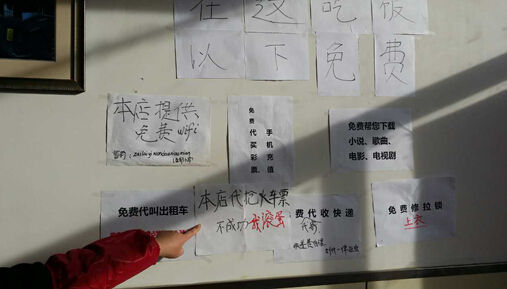 在这吃饭
以下免费
本店提供
免费wifi
免费代买彩票
手机充值
免费帮您下载
小说、歌曲、
电影、电视剧
免费代叫出租车
本店代抢火车票
不成功我滚蛋
费代收快递
免费修拉锁
上衣